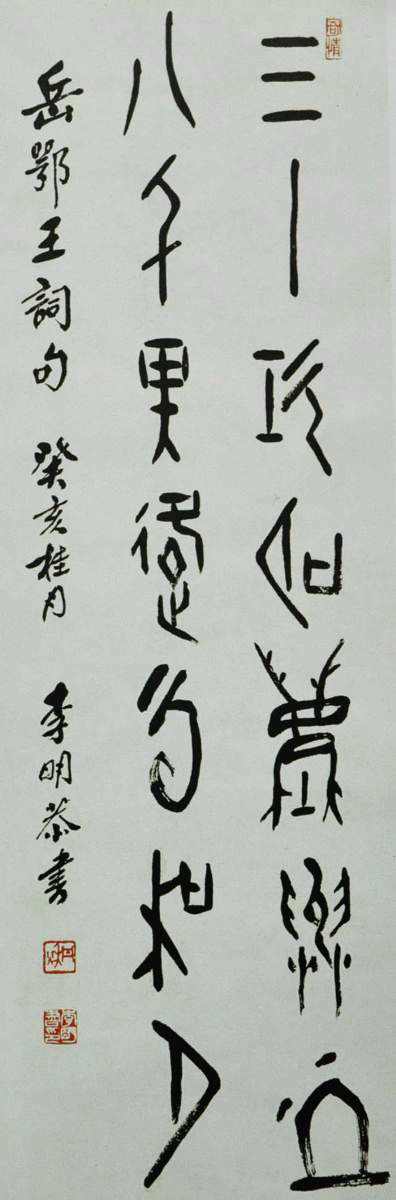 三十功名塵與土
八千里路雲和月
岳鄂王詞句 癸亥桂月 李明恭書